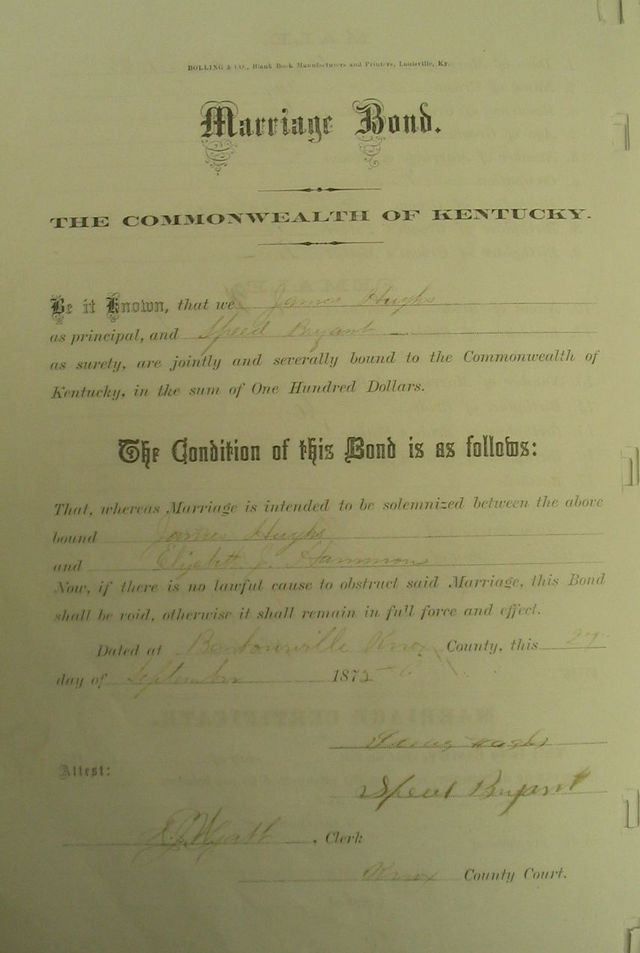 BOLLING & CO., Blank Book Manufacturers and Printers, Louisville, Ky.
Marriage Bond.
THE COMMONWEALTH OF KENTUCKY.
Be it Known, that we James Hughs
as principal, and Speed Bryant
as surety, are jointly and severally bound to the Commonwealth of
Kentucky, in the sum of One Hundred Dollars.
The Condition of this Bond is as follows:
That, whereas Marriage is intended to be solemnized between the above
bound James Hughs
and J. Hammons
Now, if there is no lawful cause to obstruct said Marriage, this Bond
shall be void, otherwise it shall remain in full force and effect.
Dated at Knox County, this 27
day of September 187
James Hughs
Attest:
Speed Bryant
, Clerk
Knox County Court.
MARRIAGE CERTIFICATE.